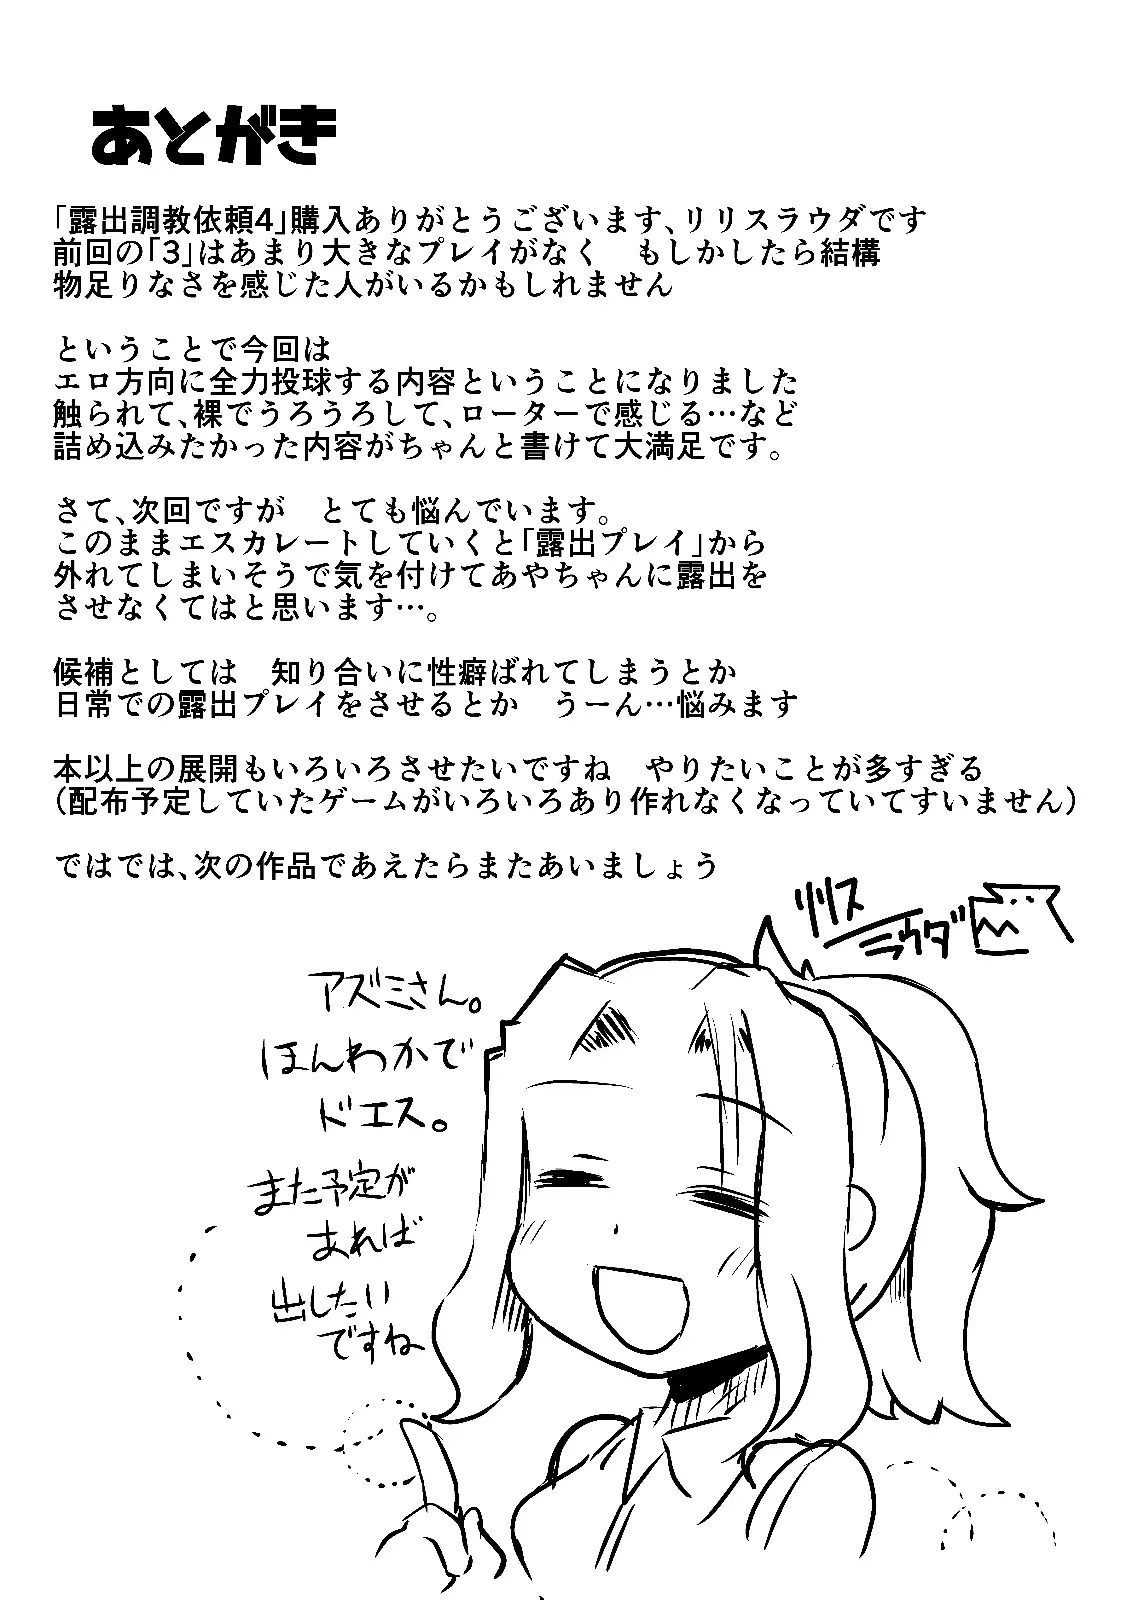 あとがき
「露出調教依頼4」購入ありがとうございます、リリスラウダです
前回の「3」はあまり大きなプレイがなく　もしかしたら結構
物足りなさを感じた人がいるかもしれません
ということで今回は
エロ方向に全力投球する内容ということになりました
触られて、裸でうろうろして、ローターで感じる…など
詰め込みたかった内容がちゃんと書けて大満足です。
さて、次回ですが　とても悩んでいます。
このままエスカレートしていくと「露出プレイ」から
外れてしまいそうで気を付けてあやちゃんに露出を
させなくてはと思います…。
候補としては　知り合いに性癖ばれてしまうとか
日常での露出プレイをさせるとか　うーん…悩みます
本以上の展開もいろいろさせたいですね　やりたいことが多すぎる
（配布予定していたゲームがいろいろあり作れなくなっていてすいません）
ではでは、次の作品であえたらまたあいましょう
リリス
ラウダ
アズミさん。
ほんわかで
ドエス。
また予定が
あれば
出したい
ですね